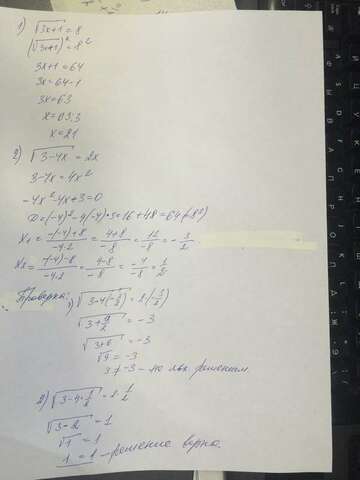 1) √3x+1 = 8
(√3x+1)² = 8²
3x+1 = 64
3x = 64-1
3x = 63
x = 63:3
x = 21
2) √3-4x = 2x
3-4x = 4x²
-4x²-4x+3=0
D=(-4)²-4(-4)·3=16+48=64(=8²)
x₁ = -(-4)+8/-4·2 = 4+8/-8 = 12/-8 = -3/2
x₂ = -(-4)-8/-4·2 = 4-8/-8 = -4/-8 = 1/2
Проверка: 1) √3-4(-3/2) = 2(-3/2)
√3+12/2 = -3
√3+6 = -3
√9 = -3
3 ≠ -3 - не явл. решением
2) √3-4·1/2 = 2·1/2
√3-2 = 1
√1 = 1
1 = 1 - решение верно.